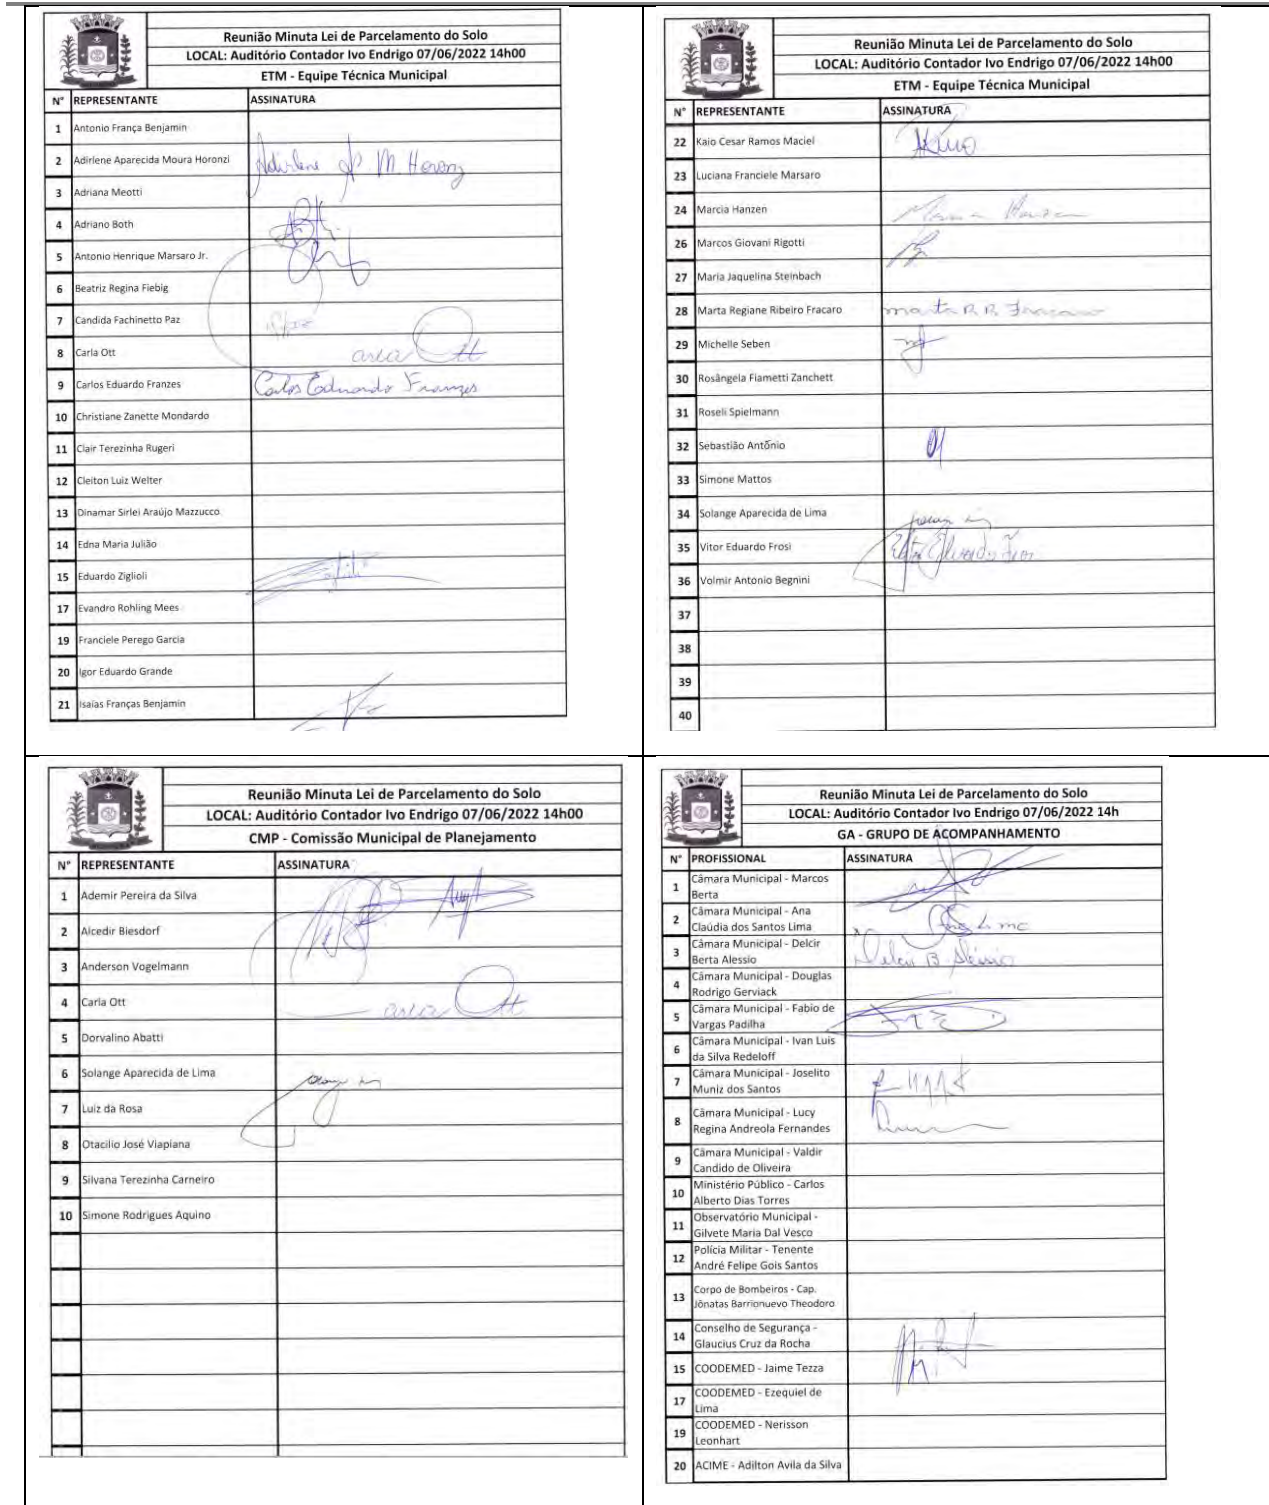 Reunião Minuta Lei de Parcelamento do Solo
LOCAL: Auditório Contador Ivo Endrigo 07/06/2022 14h00
ETM - Equipe Técnica Municipal
N° REPRESENTANTE ASSINATURA
1 Antonio França Benjamin
2 Adirlene Aparecida Moura Horonzi Adirlene Ap. M. Horonz
3 Adriana Meotti
4 Adriano Both
5 Antonio Henrique Marsaro Jr.
6 Beatriz Regina Fiebig
7 Candida Fachinetto Paz
8 Carla Ott Carla Ott
9 Carlos Eduardo Franzes Carlos Eduardo Franzes
10 Christiane Zanette Mondardo
11 Clair Terezinha Rugeri
12 Cleiton Luiz Welter
13 Dinamar Sirlei Araújo Mazzucco
14 Edna Maria Julião
15 Eduardo Ziglioli
17 Evandro Rohling Mees
19 Franciele Perego Garcia
20 Igor Eduardo Grande
21 Isaías Franças Benjamin
Reunião Minuta Lei de Parcelamento do Solo
LOCAL: Auditório Contador Ivo Endrigo 07/06/2022 14h00
ETM - Equipe Técnica Municipal
N° REPRESENTANTE ASSINATURA
22 Kaio Cesar Ramos Maciel
23 Luciana Franciele Marsaro
24 Marcia Hanzen Marcia Hanzen
26 Marcos Giovani Rigotti
27 Maria Jaquelina Steinbach
28 Marta Regiane Ribeiro Fracaro Marta R. R. Fracaro
29 Michelle Seben
30 Rosângela Fiametti Zanchett
31 Roseli Spielmann
32 Sebastião Antônio
33 Simone Mattos
34 Solange Aparecida de Lima
35 Vitor Eduardo Frosi
36 Volmir Antonio Begnini
37
38
39
40
Reunião Minuta Lei de Parcelamento do Solo
LOCAL: Auditório Contador Ivo Endrigo 07/06/2022 14h00
CMP - Comissão Municipal de Planejamento
N° REPRESENTANTE ASSINATURA
1 Ademir Pereira da Silva
2 Alcedir Biesdorf
3 Anderson Vogelmann
4 Carla Ott Carla Ott
5 Dorvalino Abatti
6 Solange Aparecida de Lima
7 Luiz da Rosa
8 Otacilio José Viapiana
9 Silvana Terezinha Carneiro
10 Simone Rodrigues Aquino
Reunião Minuta Lei de Parcelamento do Solo
LOCAL: Auditório Contador Ivo Endrigo 07/06/2022 14h
GA - GRUPO DE ACOMPANHAMENTO
N° PROFISSIONAL ASSINATURA
1 Câmara Municipal - Marcos
Berta
2 Câmara Municipal - Ana
Claúdia dos Santos Lima
3 Câmara Municipal - Delcir
Berta Alessio Delcir B. Aléssio
4 Câmara Municipal - Douglas
Rodrigo Gerviack
5 Câmara Municipal - Fabio de
Vargas Padilha
6 Câmara Municipal - Ivan Luis
da Silva Redeloff
7 Câmara Municipal - Joselito
Muniz dos Santos
8 Câmara Municipal - Lucy
Regina Andreola Fernandes
9 Câmara Municipal - Valdir
Candido de Oliveira
10 Ministério Público - Carlos
Alberto Dias Torres
11 Observatório Municipal -
Gilvete Maria Dal Vesco
12 Polícia Militar - Tenente
André Felipe Gois Santos
13 Corpo de Bombeiros - Cap.
Jônatas Barrionuevo Theodoro
14 Conselho de Segurança -
Glaucius Cruz da Rocha
15 COODEMED - Jaime Tezza
17 COODEMED - Ezequiel de
Lima
19 COODEMED - Nerisson
Leonhart
20 ACIME - Adilton Avila da Silva